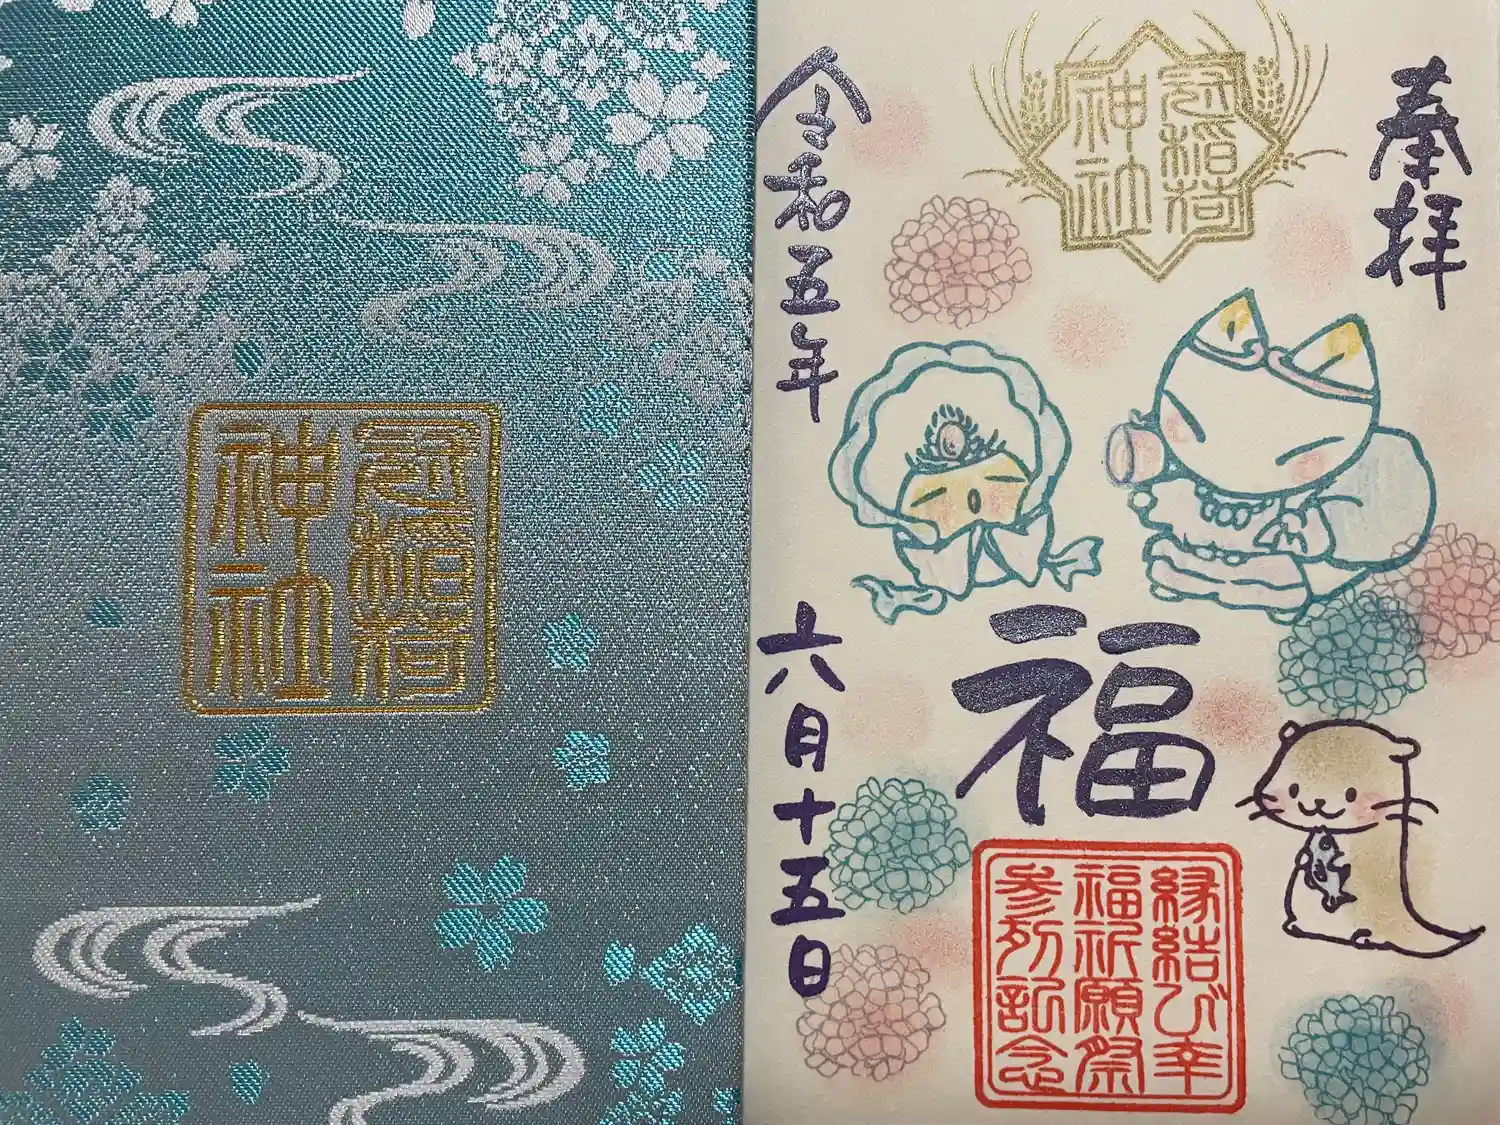 冠稲荷
神社
奉拝
冠稲荷
神社
福
縁結び幸
福祈願祭
参列記念
令和五年
六月十五日